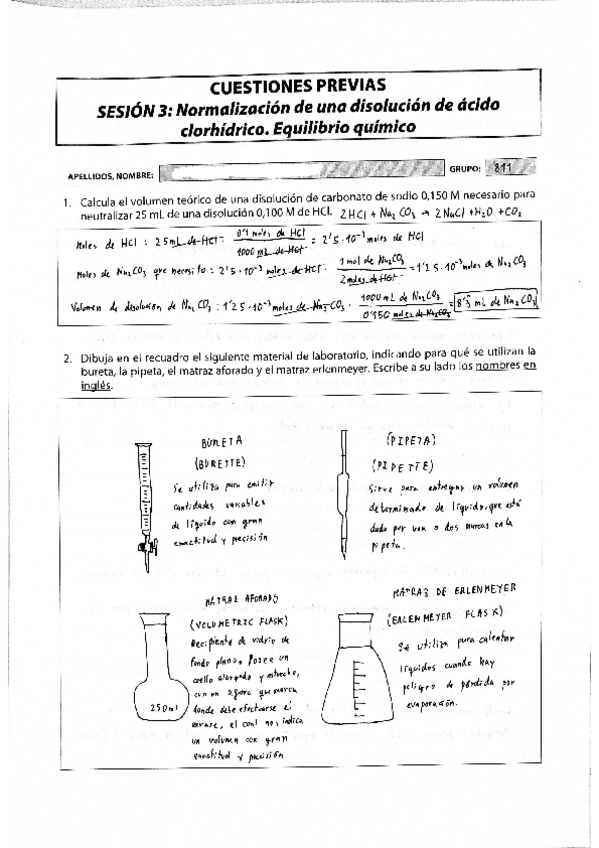 CUESTIONES PREVIAS
SESIÓN 3: Normalización de una disolución de ácido
clorhídrico. Equilibrio químico
APELLIDOS, NOMBRE:
GRUPO: 811
1. Calcula el volumen teórico de una disolución de carbonato de sodio 0,150 M necesario para
neutralizar 25 mL de una disolución 0,100 M de HCl. 2HCl + Na2CO3 → 2NaCl + H2O + CO2
Moles de HCl : 25 mL de HCl · 0'1 moles de HCl / 1000 mL de HCl = 2'5·10⁻³ moles de HCl
Moles de Na2CO3 que necesito = 2'5·10⁻³ moles de HCl · 1 mol de Na2CO3 / 2 moles de HCl = 1'25·10⁻³ moles de Na2CO3
Volumen de disolución de Na2CO3 : 1'25·10⁻³ moles de Na2CO3 · 1000 mL de Na2CO3 / 0'150 moles de Na2CO3 = 8'3 mL de Na2CO3
2. Dibuja en el recuadro el siguiente material de laboratorio, indicando para qué se utilizan la
bureta, la pipeta, el matraz aforado y el matraz erlenmeyer. Escribe a su lado los nombres en
inglés.
BURETA
(BURETTE)
Se utiliza para emitir
cantidades variables
de líquido con gran
exactitud y precisión
(PIPETA)
(PIPETTE)
Sirve para entregar un volumen
determinado de líquido, que está
dado por una o dos marcas en la
pipeta.
MATRAZ AFORADO
(VOLUMETRIC FLASK)
Recipiente de vidrio de
fondo plano. Posee un
cuello alargado y estrecho,
con un aforo que marca
donde debe efectuarse el
enrase, el cual nos indica
un volumen con gran
exactitud y precisión
250ml
MATRAZ DE ERLENMEYER
(ERLENMEYER FLASK)
Se utiliza para calentar
líquidos cuando hay
peligro de pérdida por
evaporación.